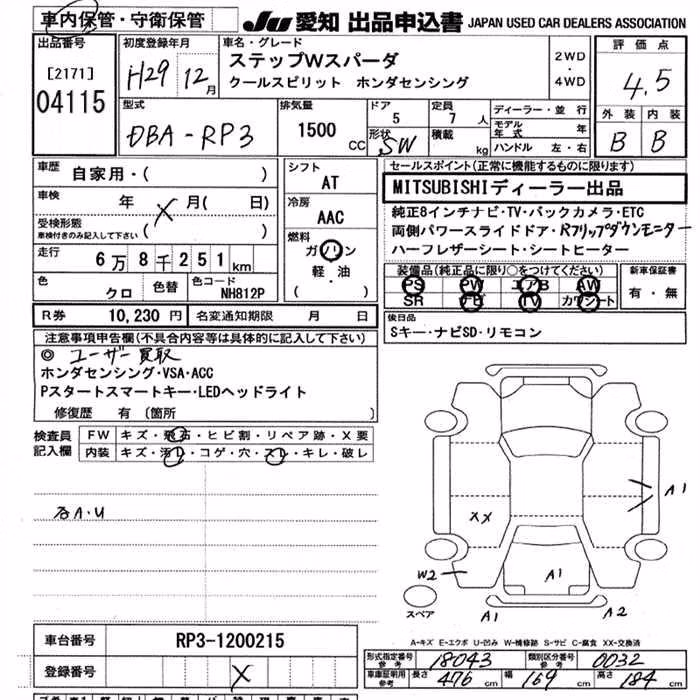 車内保管・守衛保管
JU 愛知 出品申込書 JAPAN USED CAR DEALERS ASSOCIATION
出品番号
[2171]
04115
初度登録年月
H29 12月
車名・グレード
ステップWスパーダ
クールスピリット ホンダセンシング
2WD
・
4WD
評価点
4.5
外装 内装
B B
型式
DBA-RP3
排気量
1500 CC
ドア
5
形状
SW
定員
7人
積載
kg
ディーラー・並行
モデル年式 年
ハンドル 左・右
車歴
自家用・( )
車検
年 X 月( 日)
受検形態
車検付きのみ記入して下さい ( )
走行
6万8千251km
色
クロ
色替
色コード
NH812P
シフト
AT
冷房
AAC
燃料
ガソリン
軽・油
( )
セールスポイント(正常に機能するものに限ります)
MITSUBISHIディーラー出品
純正8インチナビ・TV・バックカメラ・ETC
両側パワースライドドア・Rフリップダウンモニター
ハーフレザーシート・シートヒーター
装備品(純正品に限り○をつけてください)
PS PW エアB AW
SR ナビ TV カワシート
新車保証書
有・無
R券 10,230円 名変通知期限 月 日
後日品
Sキー・ナビSD・リモコン
注意事項申告欄(不具合内容等は具体的に記入して下さい)
◎ ユーザー買取
ホンダセンシング・VSA・ACC
Pスタートスマートキー・LEDヘッドライト
修復歴 有 (箇所 )
検査員記入欄
FW キズ・飛石・ヒビ割・リペア跡・X要
内装 キズ・汚レ・コゲ・穴・スレ・キレ・破レ
A・U
XX
A1
W2
A1
A1
A2
スペア
A-キズ E-エクボ U-凹み W-補修跡 S-サビ C-腐食 XX-交換済
車台番号 RP3-1200215
登録番号 X
形式指定番号 参考 18043 類別区分番号 参考 0032
車庫証明用 参考 長さ 476 cm 幅 169 cm 高さ 184 cm